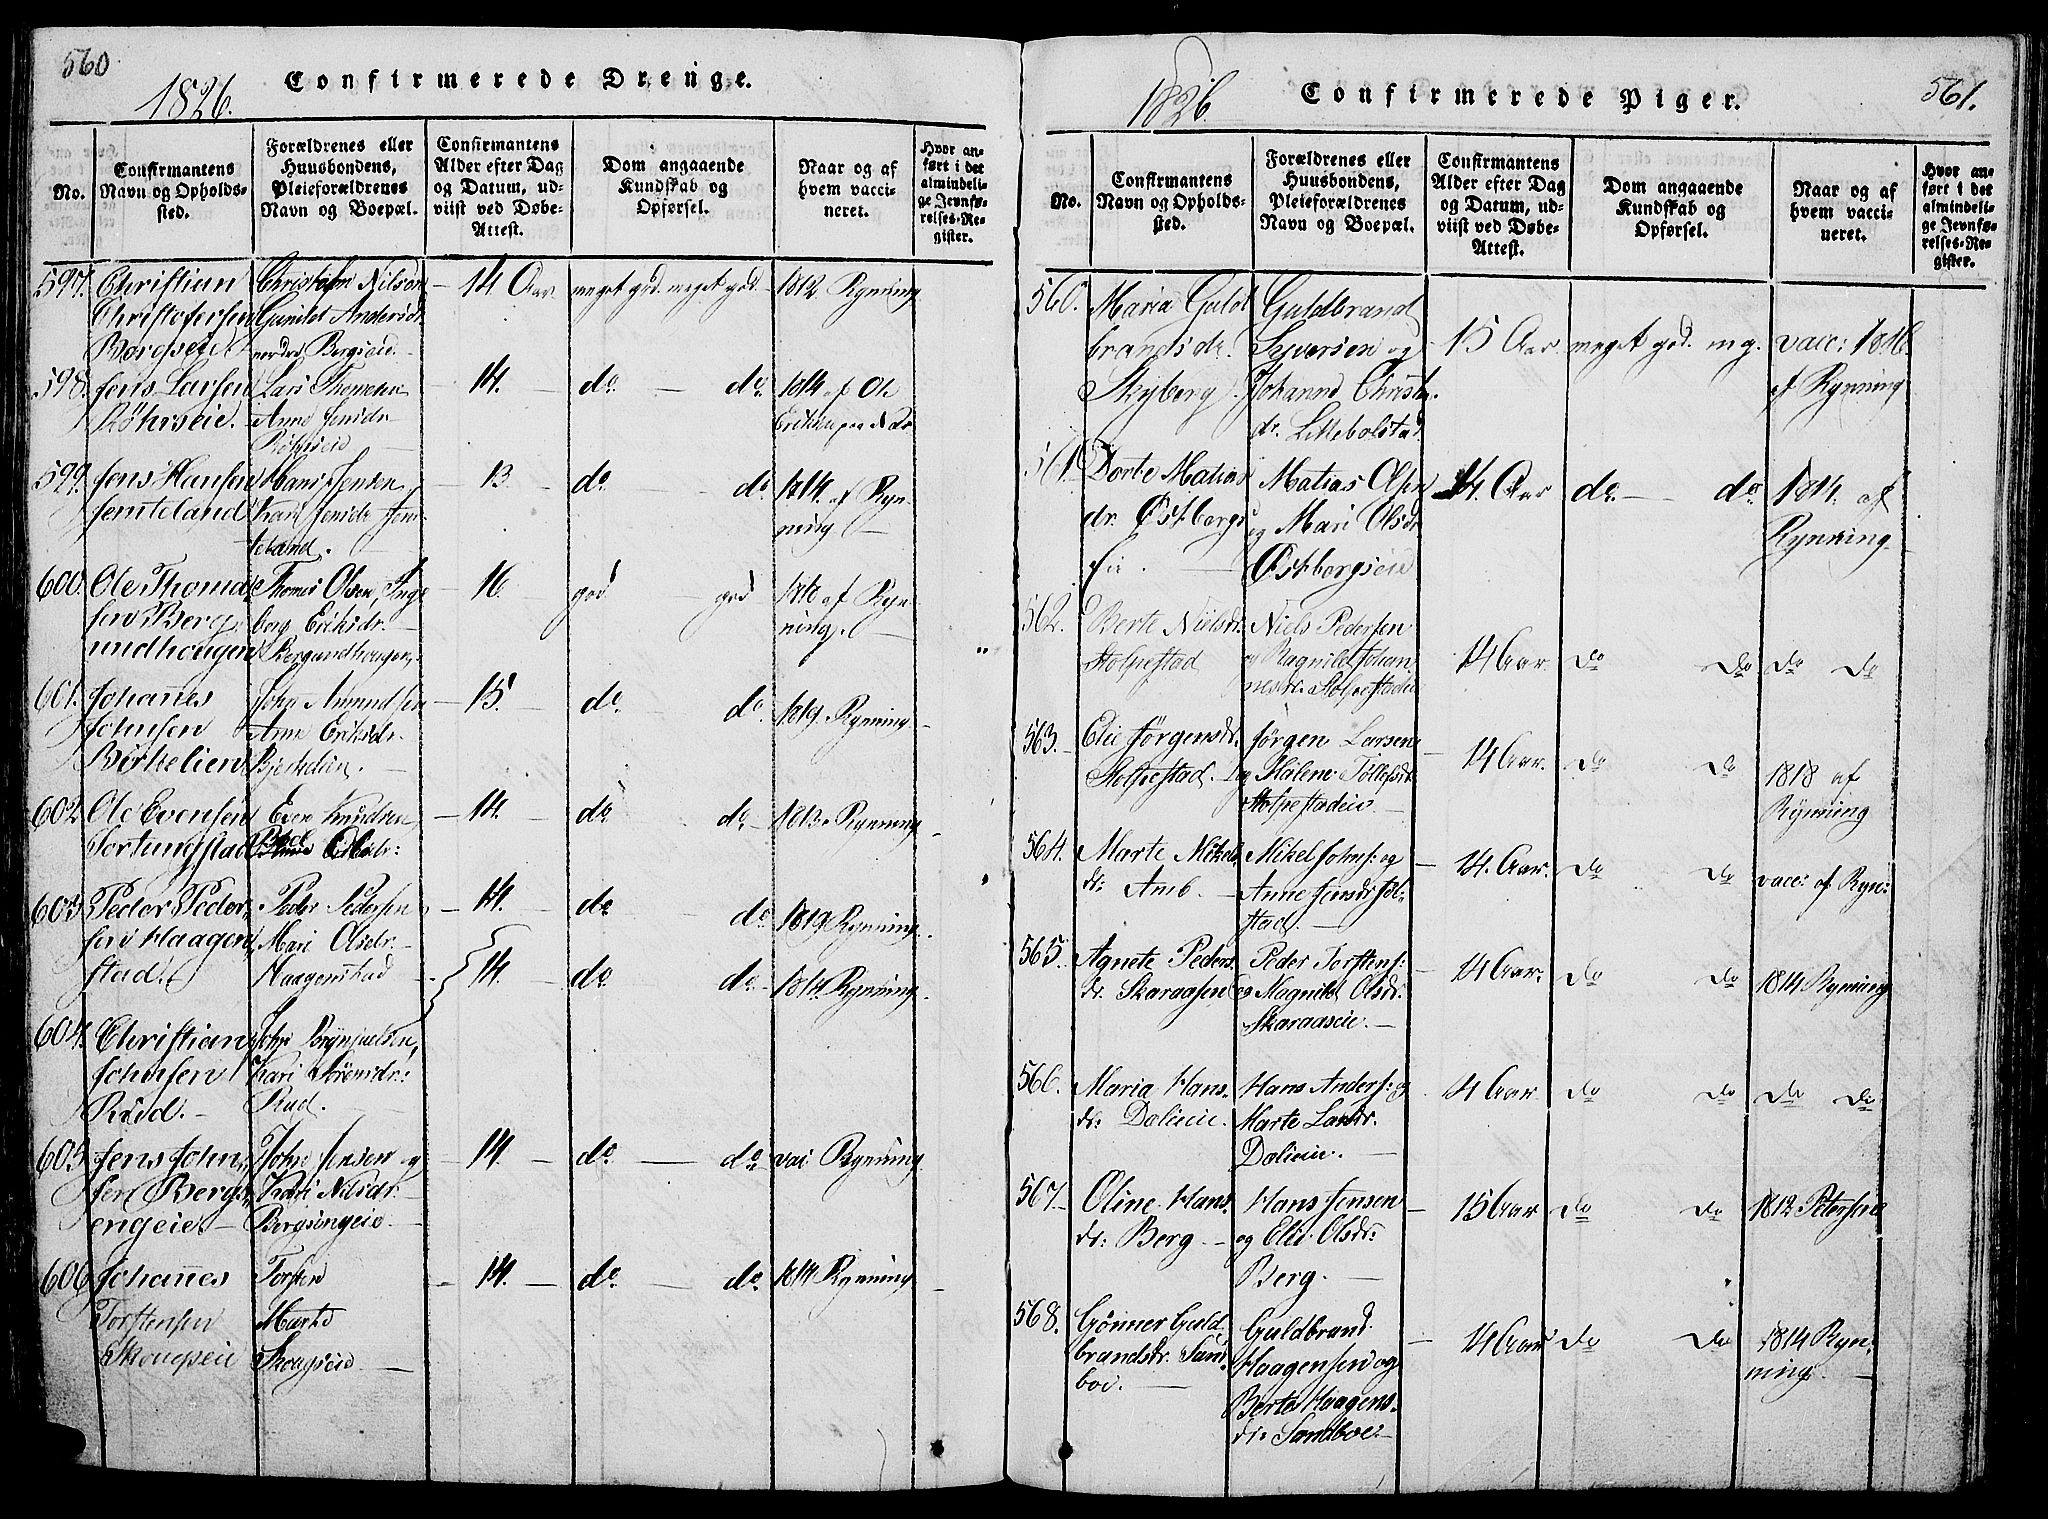 560
1826.
Confirmerede Drenge.
No.
Confirmantens
Navn og Opholds-
sted.
Forældrenes eller
Huusbondens,
Pleieforældrenes
Navn og Boepæl.
Confirmantens
Alder efter Dag
og Datum, ud-
viist ved Døbe-
Attest.
Dom angaaende
Kundskab og
Opførsel.
Naar og af
hvem vacci-
neret.
Hvor an-
ført i det
almindeli-
ge Jevnfø-
relses-Re-
gister.
597. Christian
Christofersen
Bergseie
Christofer Nilsen
Gunild Andersdr.
nordre Bergseie
14 Aar. meget god. meget god
1812 Rynning
598. Jens Larsen
Røhrseie.
Lars Thomesen
Anne Jensdr.
14. do. do.
1814 af Ole
599. Jens Hansen
Jemteland
Hans Jensen
Kari Jensdr. Jem-
teland.
13. do do
1814 af Ryn-
ning
600. Ole Thoma-
sen Berg-
undhougen
Thomes Olsen, Inge-
borg Eriksdr.
Bergundhougen.
16. god god
1810 af Ryn-
ning.
601. Johañes
Johnsen
Birkelien
John Amundsen
Anne Eriksdr.
Bjerkelien.
15. do. do.
1819. Rynning
602. Ole Evensen
Tortungstad
Even Knudsen
Olsdr:
14. do do
1813. Rynning
603. Peder Peder-
sen Haagen-
stad.
Peder Pedersen
Mari Olsdr.
Haagenstad
14. do do
1819 Rynning.
14. do do
1814 Rynning.
604. Christian
Johnsen
Rud.
John Brynjuelsen,
Kari Sörensdr.:
Rud.
605. Jens John-
sen Bergs-
engeie
John Jensen og
Kari Nilsdr.
Bergsengeie
14. do. do
vac Rynning
606. Johañes
Torstensen
Skougseie
Torsten
Marte
Skougseie
14. do. do
1814 Rynning
1826.
Confirmerede Piger.
561.
No.
Confirmantens
Navn og Opholds-
sted.
Forældrenes eller
Huusbondens,
Pleieforældrenes
Navn og Boepæl.
Confirmantens
Alder efter Dag
og Datum, ud-
viist ved Døbe-
Attest.
Dom angaaende
Kundskab og
Opførsel.
Naar og af
hvem vacci-
neret.
Hvor an-
ført i det
almindeli-
ge Jevnfø-
relses-Re-
gister.
560. Maria Guld-
brandsdr.
Skyberg.
Guldbrand
Syversen og
Johanne Christ.
dr. Littebolstad
15 Aar meget god. mg.
vacc: 1816.
af Rynning
561. Dorte Matias
dr. Østbergs
eie.
Matias Olsen
og Mari Olsdr.
Østbergseie
14. Aar do. do
1814. af
Rynning.
562. Berte Nielsdr.
Stolpestad
Niels Pedersen
og Ragnild Johan-
nesdr. Stolpestadeie
14 Aar. do do do do
563. Elie Jörgensdr.
Stolpestad.
Jörgen Larsen
og Malene Tollefsdr.
Stolpestadeie
14 Aar. do do
1818 af
Rynning
564. Marte Mikels
dr: Amb.
Mikel Johns: og
Anne Jensdr Jöl-
stad.
14. Aar. do do
vacc: af Ryn:
565. Agnete Peders
dr. Skaraasen
Peder Torstens:
og Magnild Olsdr.
Skaraaseie.
14 Aar. do do
1814 Rynning
566. Maria Hans-
dr: Dalieie.
Hans Anders: og
Marte Larsdr.
Dalieie.
14 Aar do do do do
567. Oline Hans-
dr: Berg
Hans Jensen
og Elie Olsdr:
Berg.
15 Aar do do
1812 Petersen
568. Gönner Guld
brandsdr. Sand-
boe.
Guldbrand
Haagensen og
Berte Haagens-
dr: Sandboe
14 Aar do do
1814 Ryn-
ning.